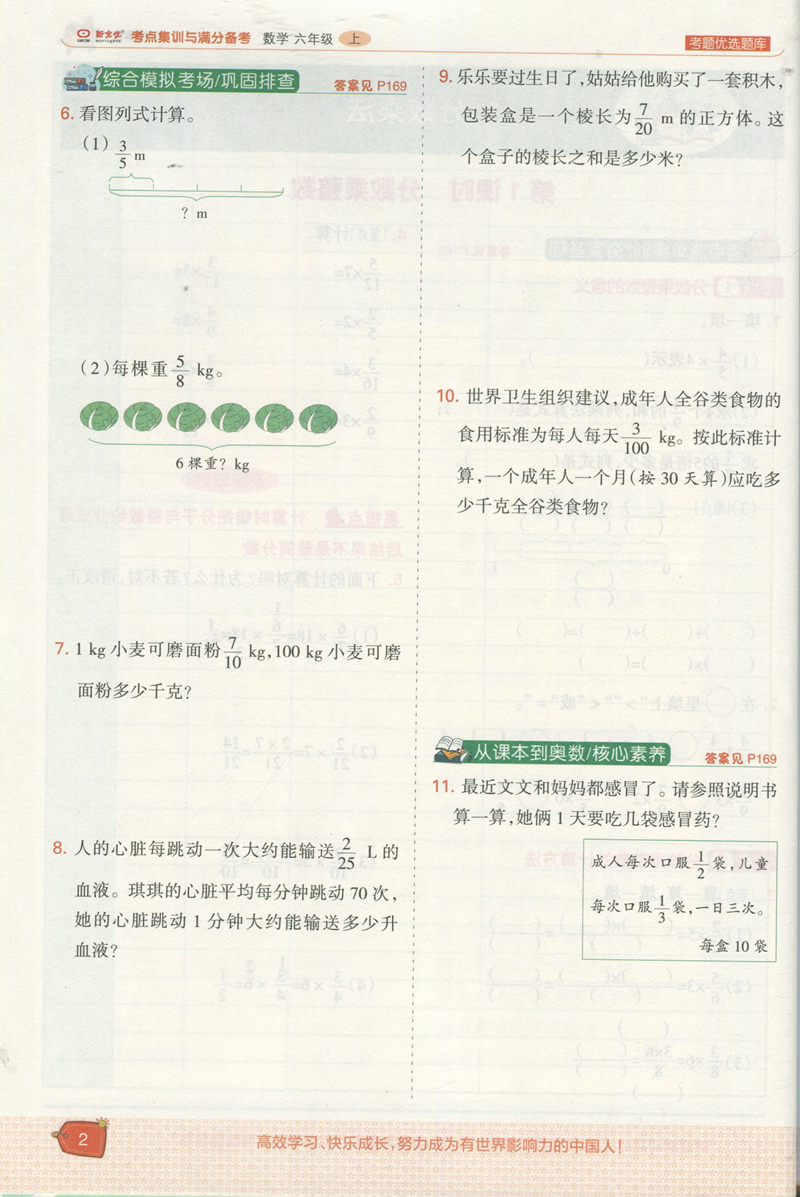 新文优 考点集训与满分备考 数学 六年级 上
考题优选题库
综合模拟考场/巩固排查 答案见 P169
6. 看图列式计算。
(1) 3/5 m
? m
(2)每棵重 5/8 kg。
6 棵重? kg
7. 1 kg 小麦可磨面粉 7/10 kg,100 kg 小麦可磨
面粉多少千克?
8. 人的心脏每跳动一次大约能输送 2/25 L 的
血液。琪琪的心脏平均每分钟跳动 70 次,
她的心脏跳动 1 分钟大约能输送多少升
血液?
9. 乐乐要过生日了,姑姑给他购买了一套积木,
包装盒是一个棱长为 7/20 m 的正方体。这
个盒子的棱长之和是多少米?
10. 世界卫生组织建议,成年人全谷类食物的
食用标准为每人每天 3/100 kg。按此标准计
算,一个成年人一个月(按 30 天算)应吃多
少千克全谷类食物?
从课本到奥数/核心素养 答案见 P169
11. 最近文文和妈妈都感冒了。请参照说明书
算一算,她俩 1 天要吃几袋感冒药?
成人每次口服 1/2 袋,儿童
每次口服 1/3 袋,一日三次。
每盒 10 袋
2
高效学习、快乐成长,努力成为有世界影响力的中国人!